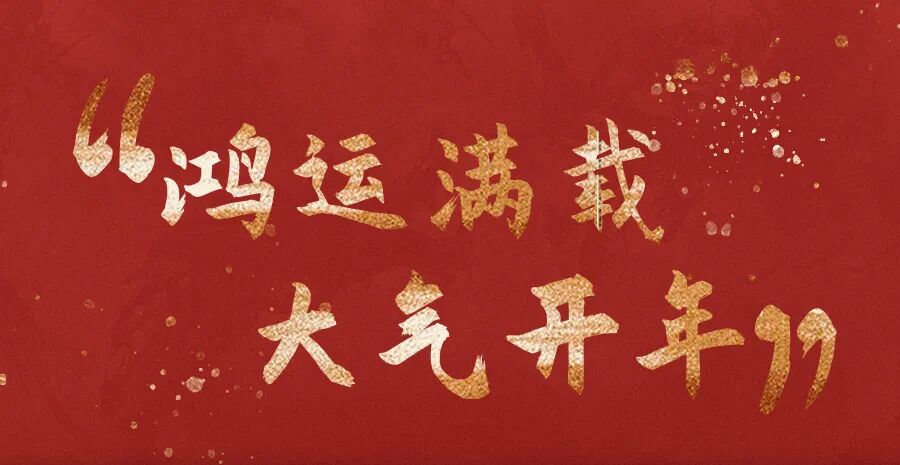 “鸿运满载
大气开年”